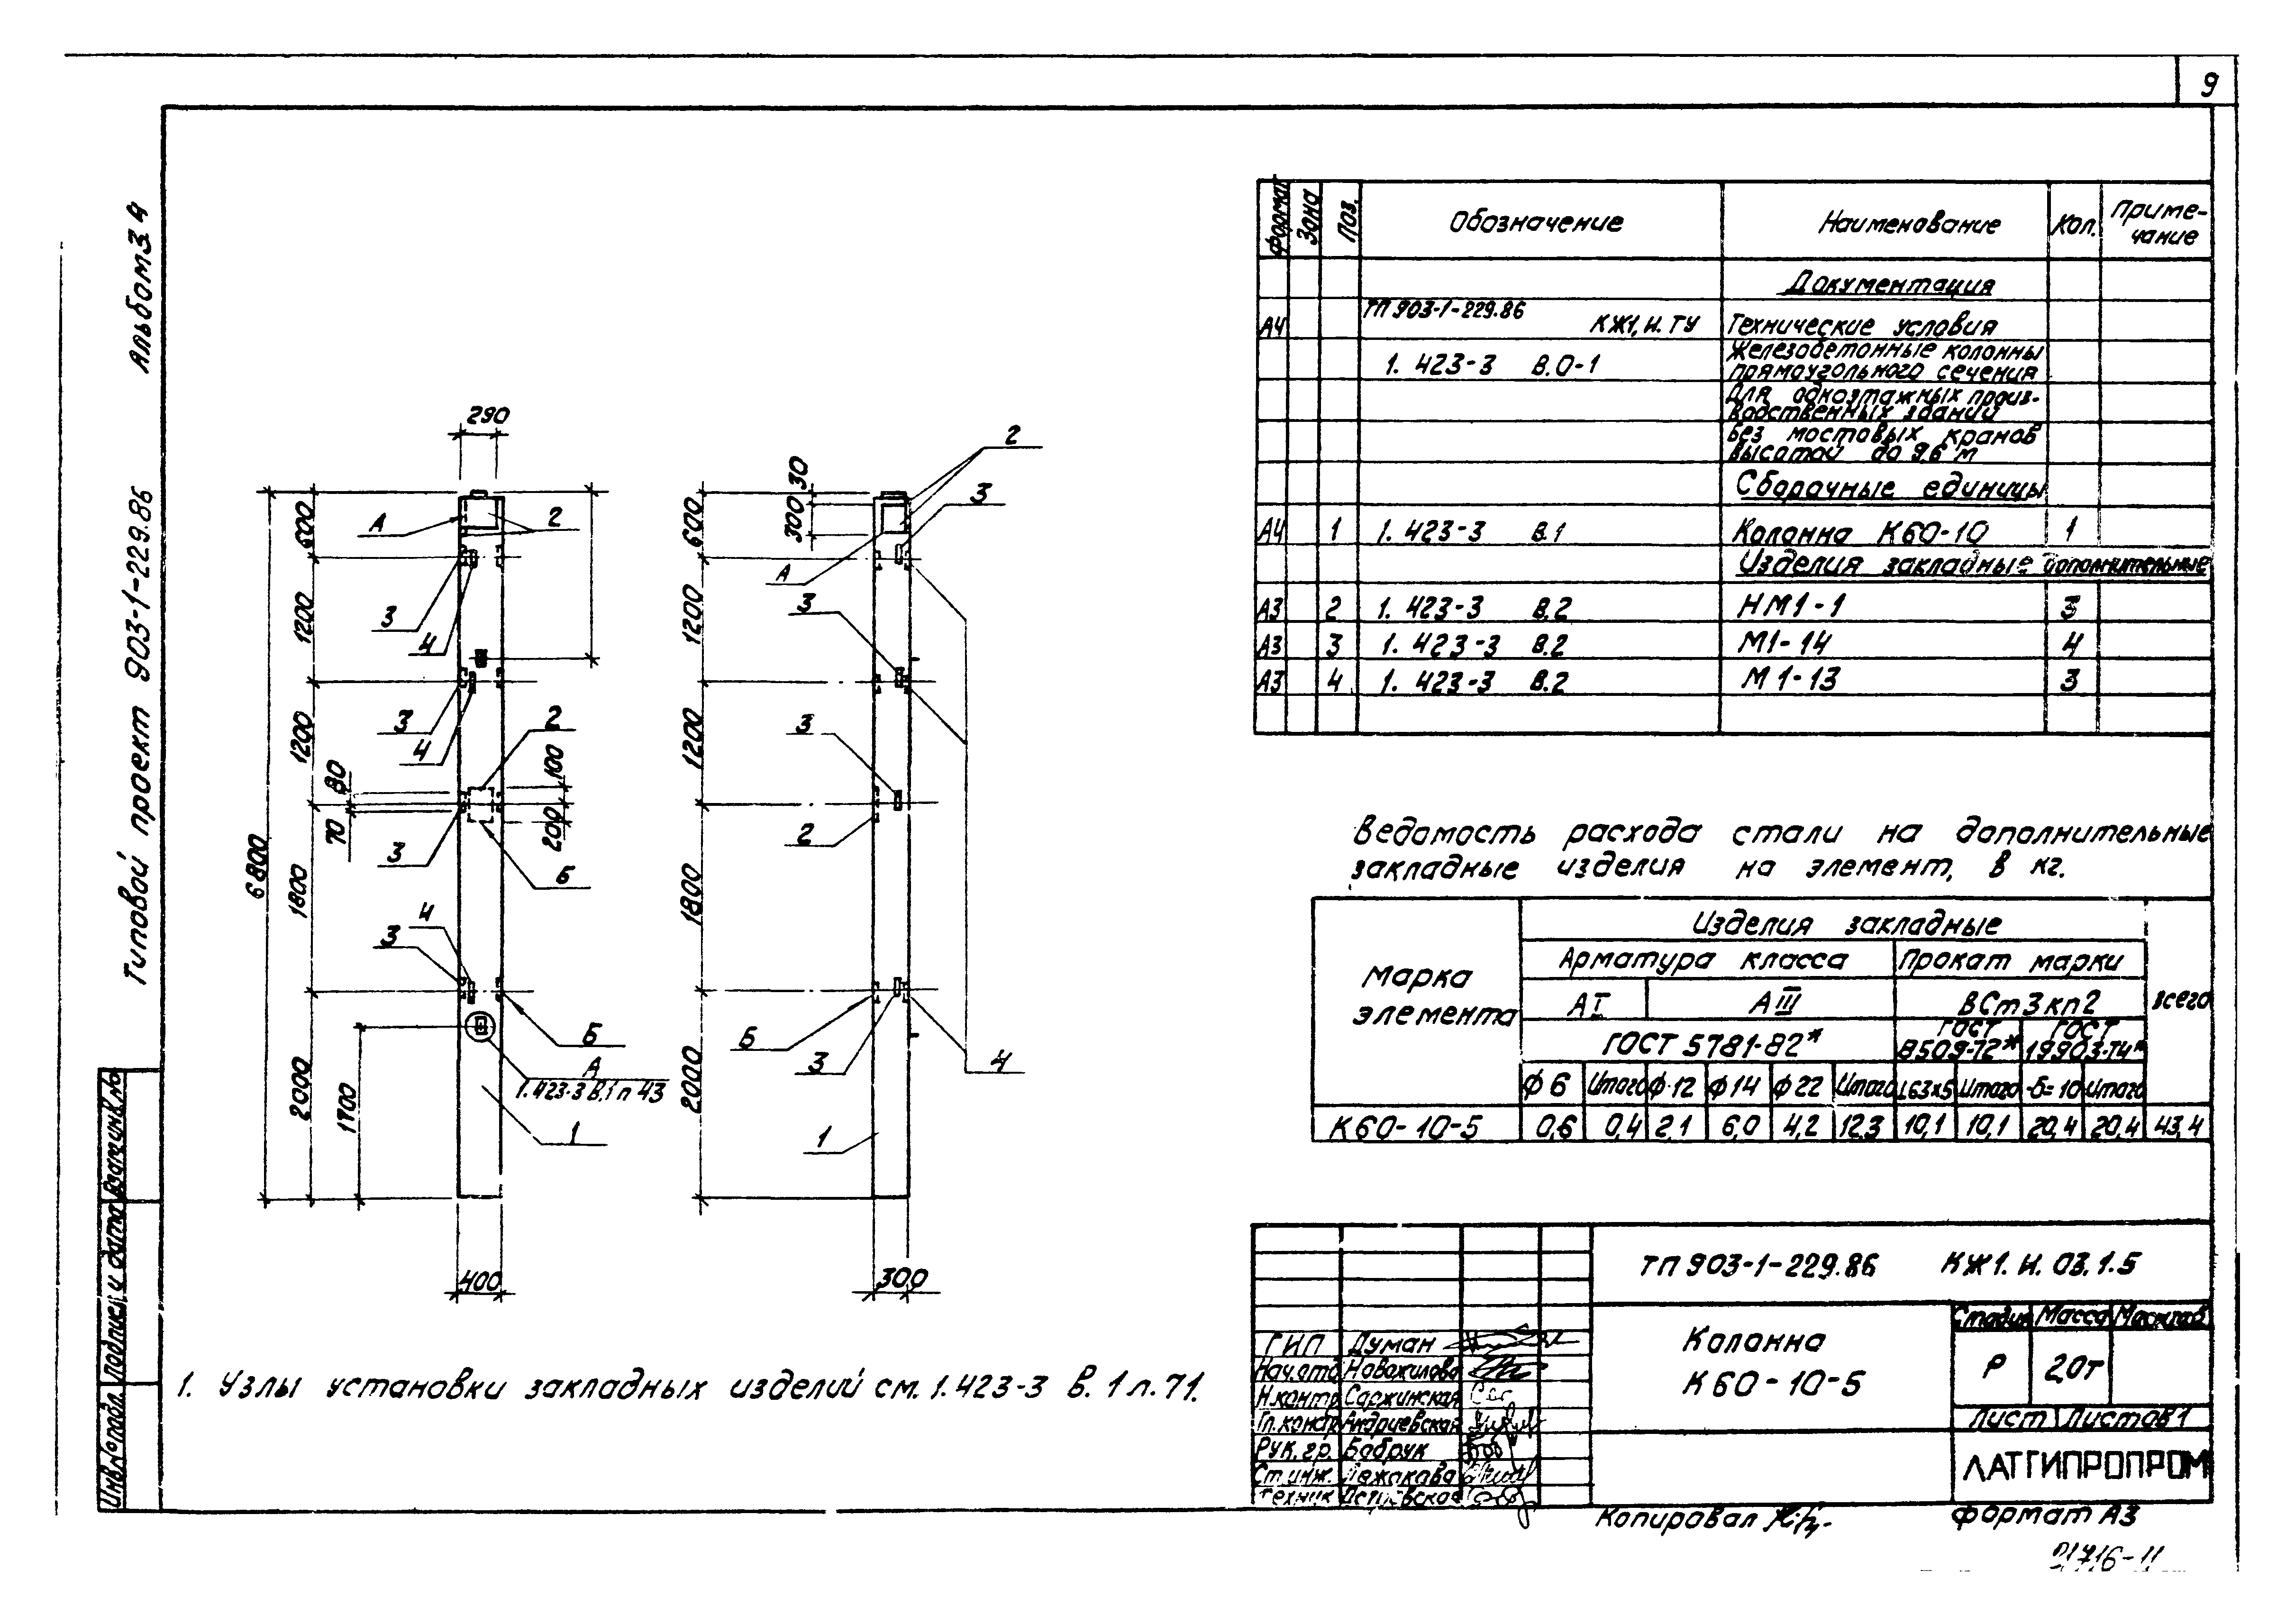 9
Альбом 3.4
Типовой проект 903-1-229.86
Инв.№подл. Подпись и дата Взам.инв.№
290
6800
600
1200
1200
1800
2000
1700
80
70
100
200
А
2
3
4
3
4
2
3
Б
4
3
Б
А
1.423-3 В.1 п 43
1
400
30
300
600
1200
1200
1800
2000
2
3
А
3
3
2
Б
3
4
1
300
1. Узлы установки закладных изделий см. 1.423-3 В. 1 л. 71.
Формат Зона Поз. Обозначение Наименование Кол. Приме-
чание
Документация
ТП 903-1-229.86
А4 КЖ1.И.ТУ Технические условия
1. 423-3 В.0-1 Железобетонные колонны
прямоугольного сечения
для одноэтажных произ-
водственных зданий
без мостовых кранов
высотой до 9,6 м
Сборочные единицы
А4 1 1. 423-3 В.1 Колонна К60-10 1
Изделия закладные дополнительные
А3 2 1. 423-3 В.2 НМ1-1 3
А3 3 1. 423-3 В.2 М1-14 4
А3 4 1. 423-3 В.2 М1-13 3
Ведомость расхода стали на дополнительные
закладные изделия на элемент, в кг.
Марка элемента
Изделия закладные
Всего
Арматура класса Прокат марки
АI АIII ВСт3кп2
ГОСТ 5781-82* ГОСТ 8509-72* ГОСТ 19903-74*
ф6 Итого ф12 ф14 ф22 Итого L63х5 Итого -δ=10 Итого
К60-10-5 0,6 0,4 2,1 6,0 4,2 12,3 10,1 10,1 20,4 20,4 43,4
ТП 903-1-229.86 КЖ1.И.03.1.5
Колонна
К60-10-5
Стадия Масса Масштаб
Р 2,0т
Лист Листов 1
ЛАТГИПРОПРОМ
ГИП Думан
Нач.отд Новожилова
Н.контр Саржинская
Гл.констр Андриевская
Рук.гр. Бабрук
Ст.инж.
Техник
Копировал
Формат А3
21716-11